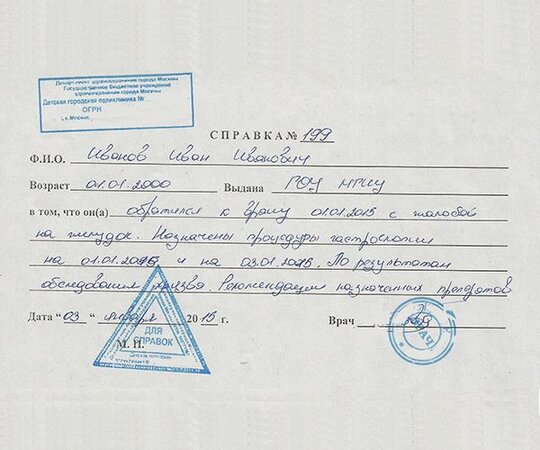 Департамент здравоохранения города Москвы
Государственное бюджетное учреждение
здравоохранения города Москвы
Детская городская поликлиника №
ОГРН
г. Москва,
СПРАВКА № 199
Ф.И.О. Иванов Иван Иванович
Возраст 01.01.2000 Выдана
в том, что он(а) обратился к врачу 01.01.2015 с жалобой
на желудок. Назначены процедуры гастроскопии
на 01.01.2015 и на 03.01.2015. По результатам
обследования язва. Рекомендации назначенных препаратов.
Дата "03 " января 2015 г. Врач
М. П.
ДЛЯ
СПРАВОК
ВРАЧ